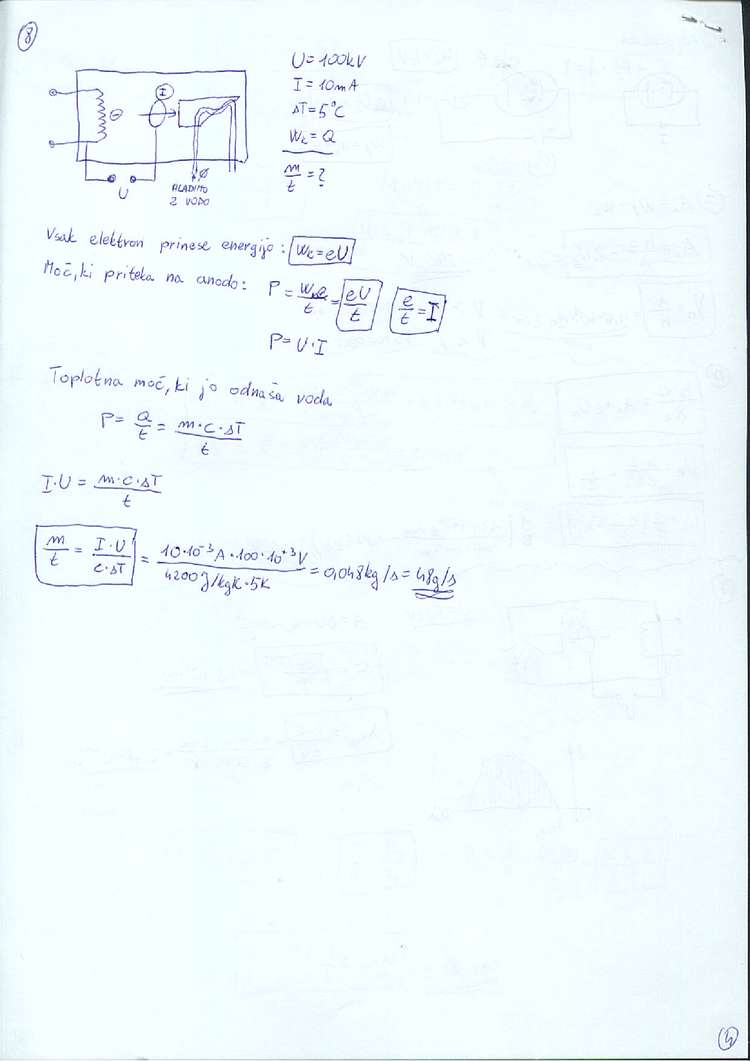 8
U = 100kV
I = 10mA
ΔT = 5°C
Wk = Q
m/t = ?
I
⊖
U
HLADIMO
Z VODO
Vsak elektron prinese energijo: Wk = eU
Moč, ki priteka na anodo: P = = eU/t e/t = I
P = U·I
Toplotna moč, ki jo odnaša voda
P = Q/t = m·c·ΔT/t
I·U = m·c·ΔT/t
m/t = I·U/c·ΔT = 10·10⁻³A·100·10⁺³V/4200J/kgK·5K = 0,048kg/s = 48g/s
4